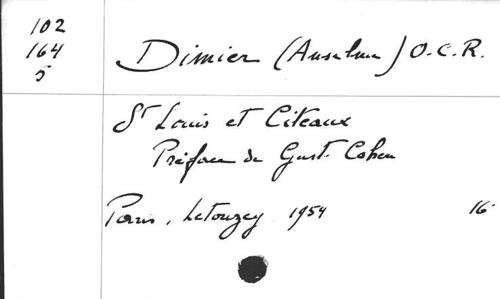 102
164
5
Dimier (Anselme) O.C.R.
St Louis et Citeaux
Préface de Gust. Cohen
Paris, Letouzey 1954 16°